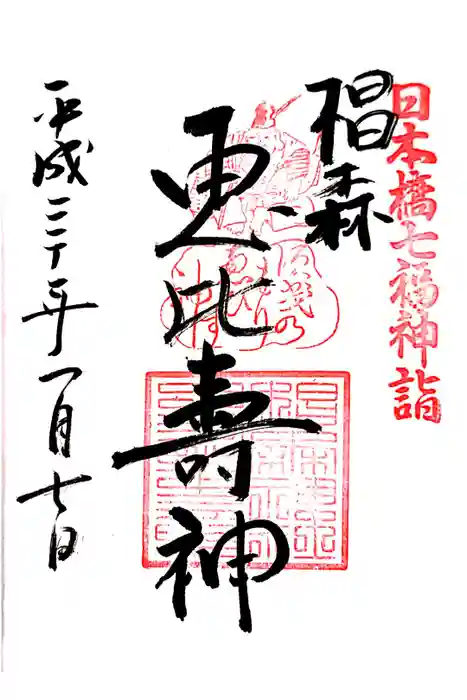 日本橋七福神詣
椙森
恵比壽神
平成三十年一月七日